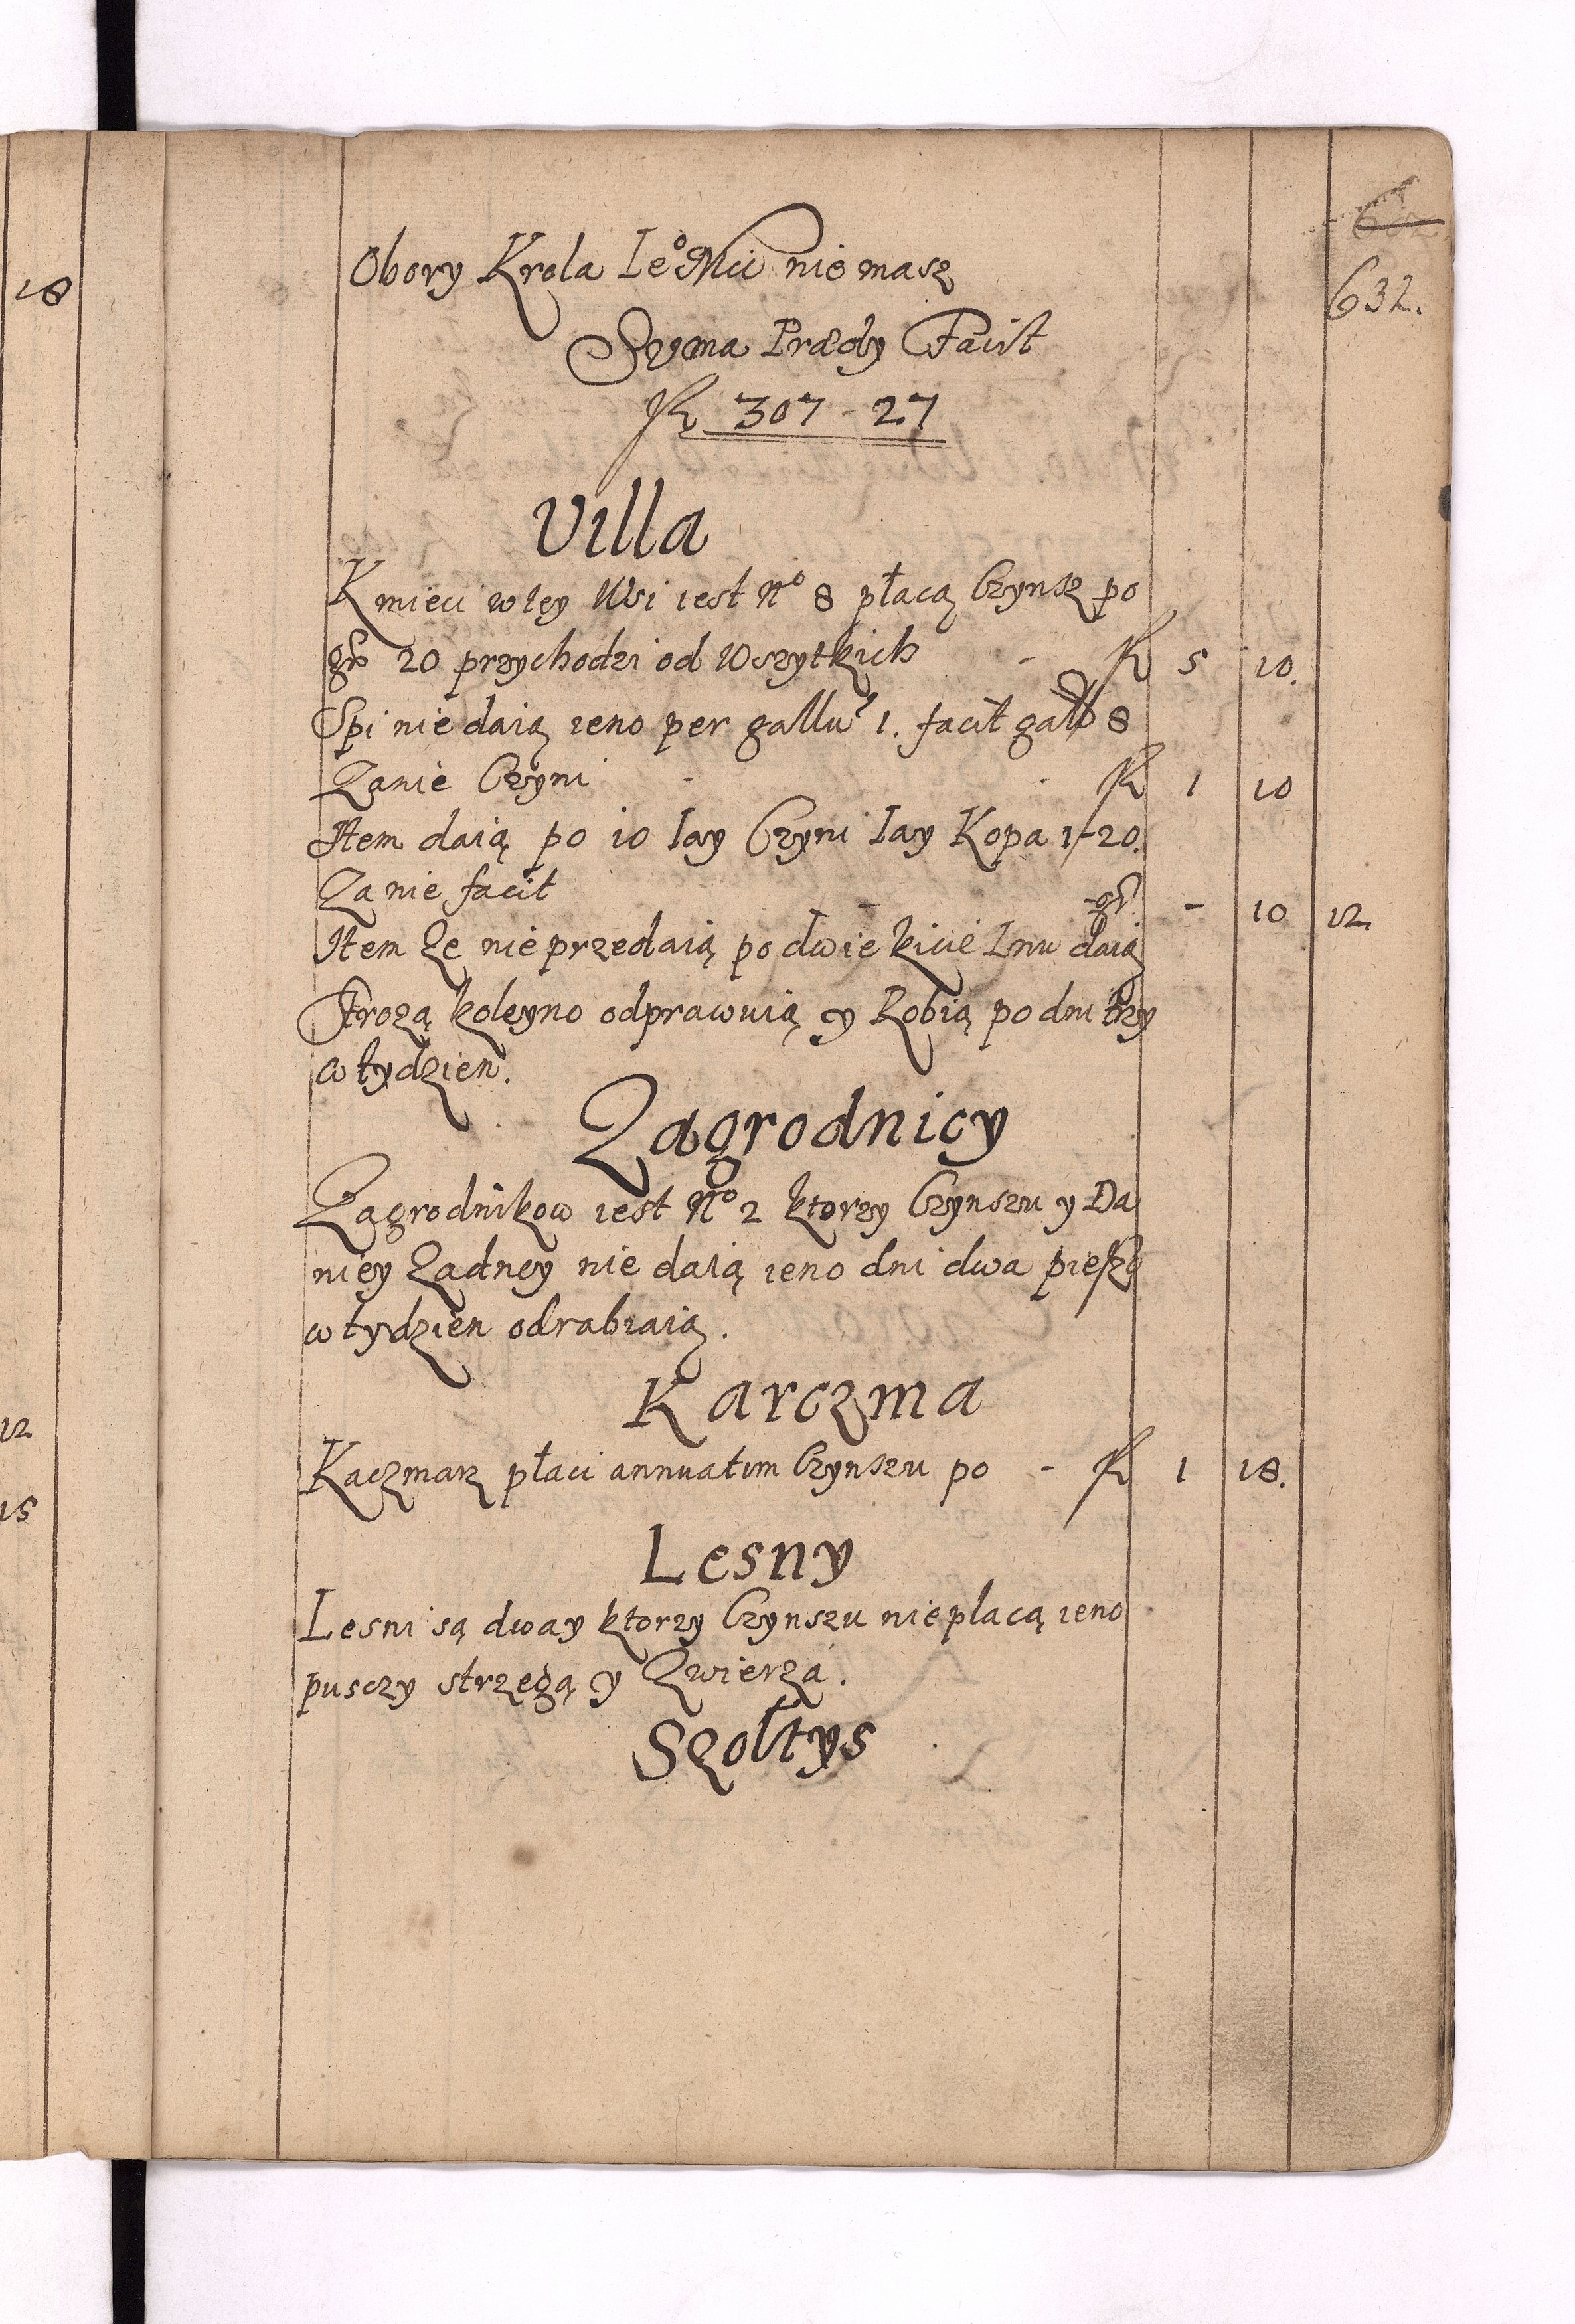 632.
18
Obory Krola Ieo Mci nie masz
Suma Prædy Facit
fl 307 - 27
Villa
Kmieci w tey Wsi iest No 8 płacą Czynsz po
gr 20 przychodzi od Wszytkich - fl 5 10.
Spi nie daią ieno per gallu 1. facit gall 8
Za nie Czyni - - fl 1 10
Item daią po 10 Iay Czyni Iay Kopa 1-20.
Za nie facit gr - 10 12
Item że nie przedaią po dwie kicie Lnu daią
Strożą koleyno odprawuią y Robią po dni trzy
w tydzien.
Zagrodnicy
Zagrodnikow iest No 2 ktorzy Czynszu y Da
niey Żadney nie daią ieno dni dwa pieszo
w tydzien odrabiaią.
Karczma
12
Kaczmarz płaci annuatim Czynszu po - fl 1 18.
15
Lesny
Lesni są dway ktorzy Czynszu nie placą ieno
pusczy strzegą y Zwierza.
Szołtys